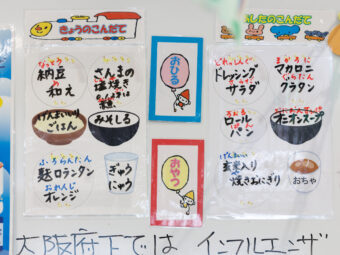 きょうのこんだて
なっとう
納豆
和え
さんまの
塩焼き
げんまいいり
ごはん
みそしる
ふろらんたん
麩ロランタン
おれんじ
オレンジ
ぎゅう
にゅう
おひる
おやつ
したのこんだて
どれっしんぐ
ドレッシング
サラダ
まかろに
マカロニ
ぐらたん
グラタン
ろーる
ロール
パン
オニオンスープ
げんまい
玄米入り
焼きおにぎり
おちゃ
大阪府下では インフルエンザ